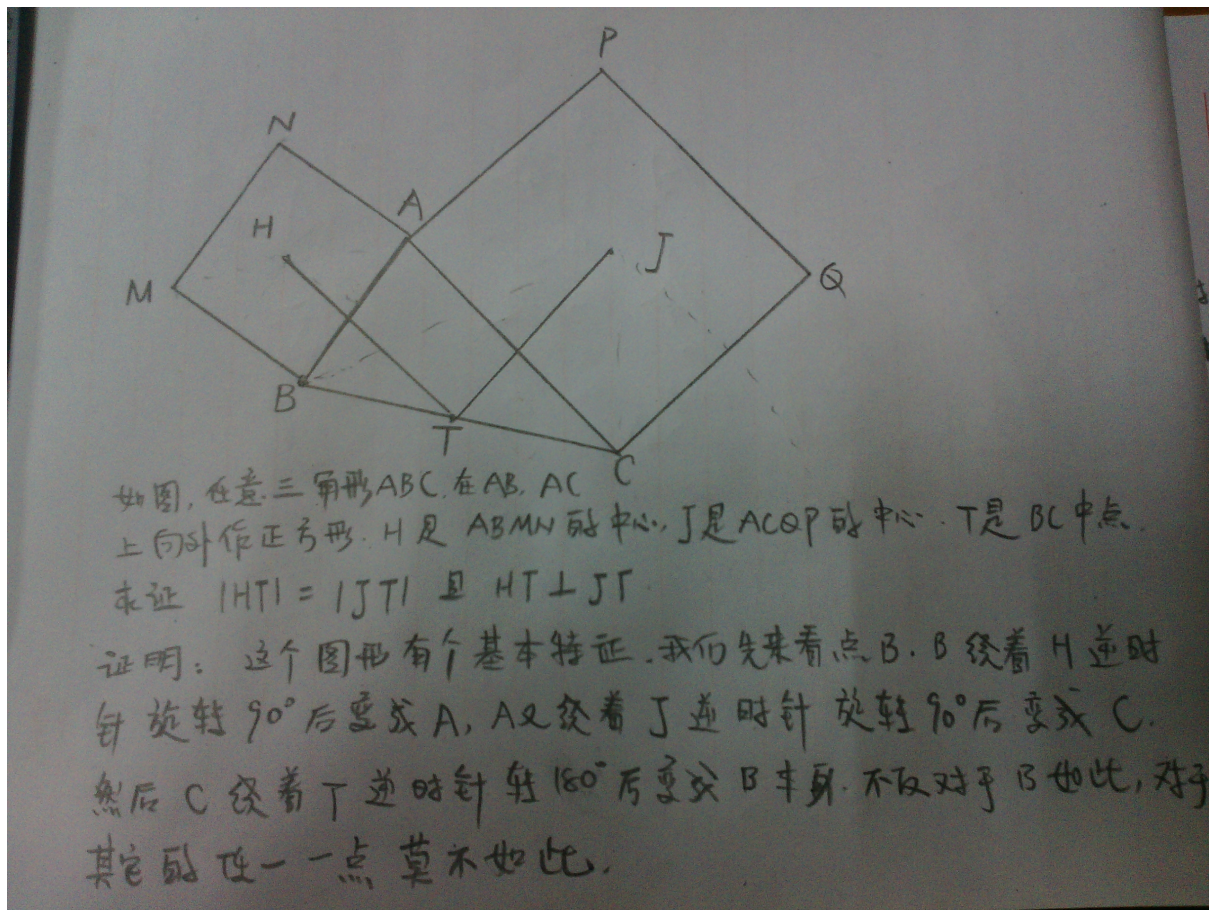 P
N
A
H
J
M
Q
B
T
C
如图,任意三角形ABC,在AB,AC
上向外作正方形.H是ABMN的中心,J是ACQP的中心.T是BC中点.
求证 |HT| = |JT| 且 HT⊥JT
证明:这个图形有个基本特征.我们先来看点B.B绕着H逆时
针旋转90°后变成A,A又绕着J逆时针旋转90°后变成C.
然后C绕着T逆时针转180°后变成B本身.不仅对于B如此,对于
其它的任一一点莫不如此.